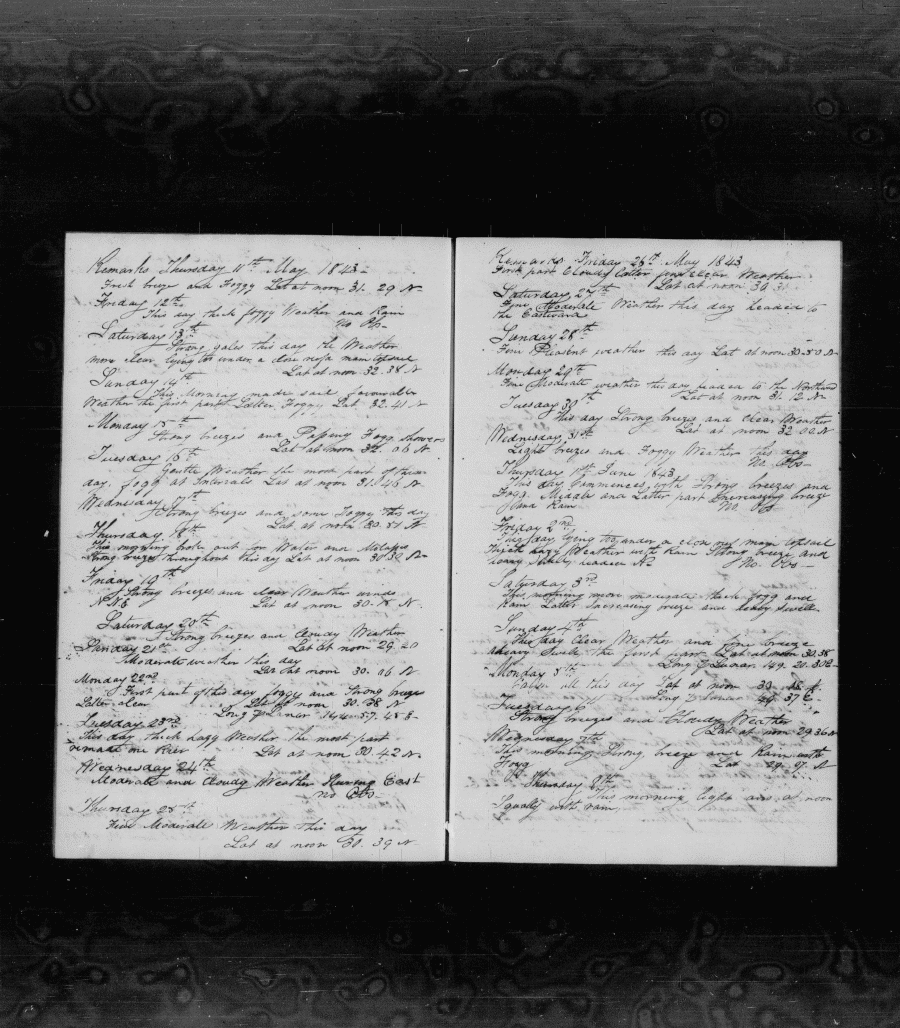 Remarks Thursday 11th May 1843 -
Fresh breeze and Foggy Lat at noon 31. 29 N
Friday 12th
This day thick foggy Weather and Rain
No Obs -
Saturday 13th
Strong gales this day the Weather
more clear lying too under a close
Lat at noon 32.38 N
Sunday 14th
This Morning made sail favourable
Weather the first part Latter Foggy Lat 32.41 N
Monday 15th
Strong breezes and Passing Fogg showers
Lat at noon 32. 06 N
Tuesday 16th
Gentle Weather the most part of these
day. fogg at Intervals Lat at noon 31.46 N
Wednesday 17th
Strong breezes and some Foggy this day
Lat at noon 30.51 N
Thursday 18th
This morning broke out for Water and Molasses
Strong breeze throughout this day Lat at noon 30 N
Friday 19th
Strong breezes and clear Weather winds
N N E Lat at noon 30. N.
Saturday 20th
Strong breezes and Cloudy Weather
Lat at noon 29. 20
Sunday 21st
Moderate weather this day
Lat at noon 30. 06 N
Monday 22nd
First part of this day foggy and Strong breeze
Latter clear Lat at noon 30.38 N
Long
Tuesday 23nd
This day thick hazy Weather the most part
Lat at noon 30.42 N
Wednesday 24th
Moderate and Cloudy Weather Steering East
no Obs -
Thursday 25th
Fine Moderate Weather this day
Lat at noon 30. 39 N
Remarks Friday 26th May 1843
First part Cloudy Latter part clear Weather
Lat at noon 30
Saturday 27th
Fine Moderate Weather this day headed to
the Eastward
Sunday 28th
Fine Pleasent weather this day Lat at noon 30.50 N
Monday 29th
Fine Moderate weather this day headed to the Northward
Lat at noon 31. 12 N
Tuesday 30th
This day Strong breezes and clear Weather
Lat at noon 32 02 N
Wednesday 31st
Light breezes and Foggy Weather this day
No. Obs -
Thursday 1st June 1843
This day Commences with Strong breezes and
Fogg. Middle and Latter part Increasing breeze
and Rain No Obs
Friday 2nd
This day lying too under a close topsail
Thick hazy Weather with Rain Strong breeze and
heavy No. Obs -
Saturday 3rd
This morning more moderate thick fogg and
Rain Latter Increasing breeze and heavy swell
Sunday 4th
This day Clear Weather and fine breeze
Heavy Swell the first part Lat at noon 30.38
Long Lunar 149. 20. 30
Monday 5th
Calm all this day Lat at noon 30
Long Lunar 37 E -
Tuesday 6
Strong breezes and Cloudy Weather
Lat at noon 29 36 N
Wednesday 7th
This morning Strong breeze and Rain with
Fogg Lat 29. 27. N
Thursday 8th
This morning light airs at noon
Squaly with rain